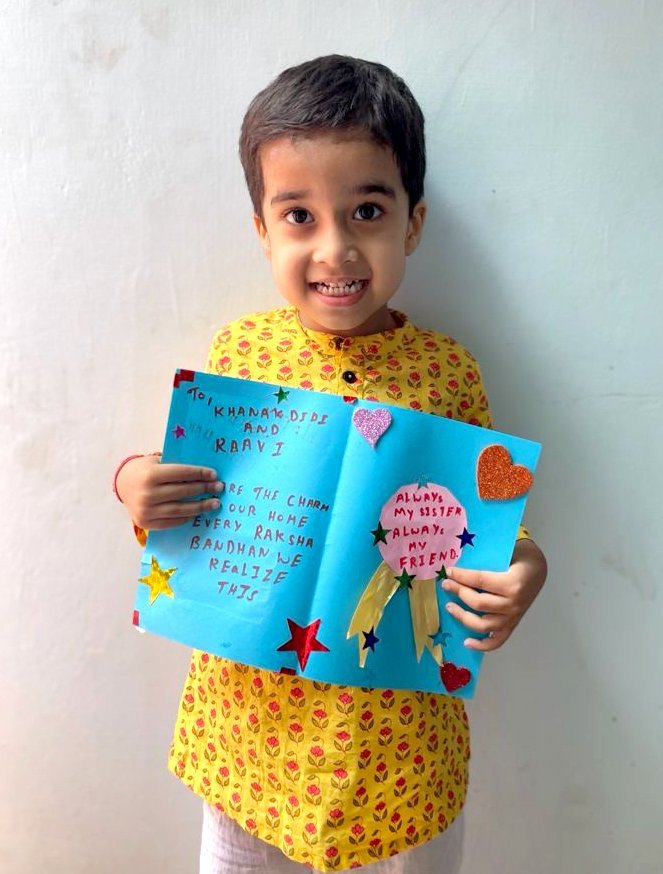 To,
KHANAK DIDI
AND
RAAVI
RE THE CHARM
OUR HOME
EVERY RAKSHA
BANDHAN WE
REALIZE
THIS
ALWAYS
MY SISTER
ALWAYS
MY
FRIEND.